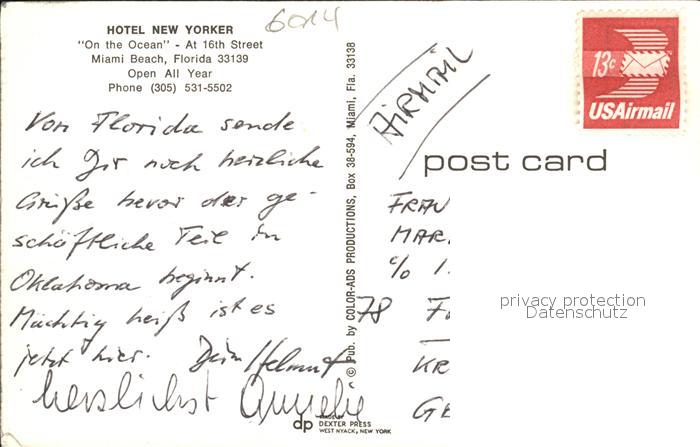 6014
HOTEL NEW YORKER
"On the Ocean" - At 16th Street
Miami Beach, Florida 33139
Open All Year
Phone (305) 531-5502
Von Florida sende
ich Dir noch herzliche
Grüße bevor der ge-
schäftliche Teil in
Oklahoma beginnt.
Mächtig heiß ist es
jetzt hier. Dein Helmut
herzlichst Annelie
© Pub. by COLOR-ADS PRODUCTIONS, Box 38-594, Miami, Fla. 33138
dp MADE BY
DEXTER PRESS
WEST NYACK, NEW YORK
AIRMAIL
13c
USAirmail
post card
FRAU
MAR.
c/o 1.
78 F
KR
GE
privacy protection
Datenschutz